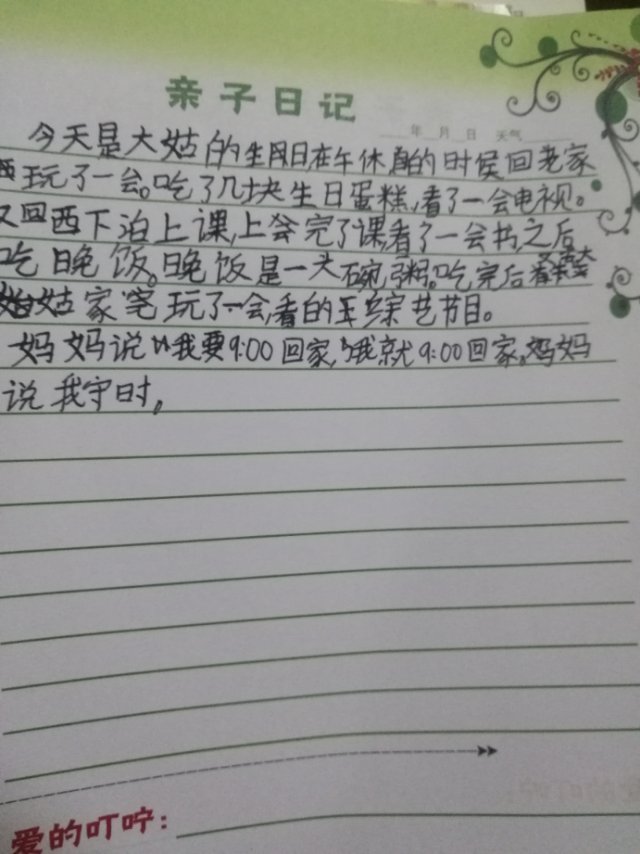 亲子日记
年 月 日 天气
今天是大姑的生月日在午休的时侯回老家
我玩了一会。吃了几块生日蛋糕,看了一会电视。
又回西下泊上课,上完了课,看了一会书之后
吃晚饭。晚饭是一大碗粥。吃完后
姑家玩了一会,看的王综艺节目。
妈妈说“我要9:00回家,“我就9:00回家。妈妈
说我守时,
爱的叮咛: